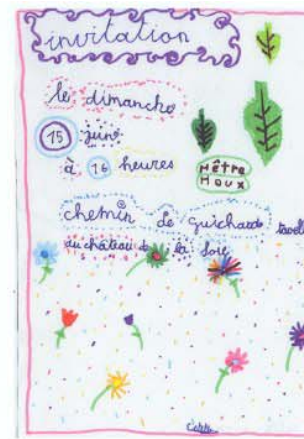 invitation
le dimanche
15 juin
à 16 heures
HÊTRE
HOUX
chemin de
du château à la